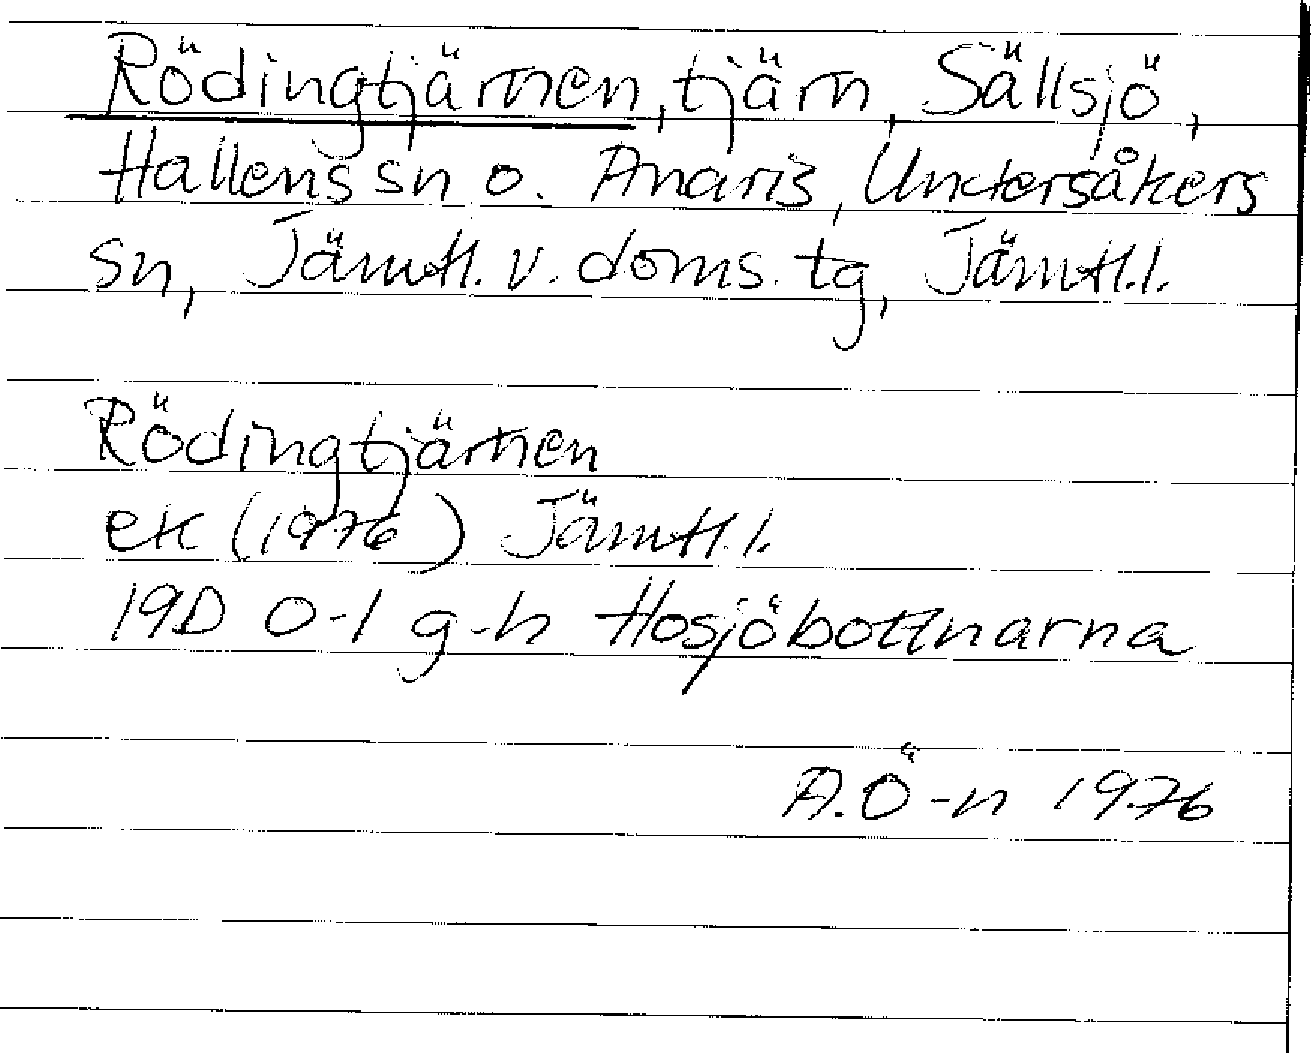 Rödingtjärnen, tjärn, Sällsjö,
Hallens sn o. Anaris, Undersåkers
sn, Jämtl. v. doms. tg, Jämtl. l.
Rödingtjärnen
ek (1976) Jämtl. l.
19D 0-1 g-h Hosjöbottnarna
A. Ö-n 1976